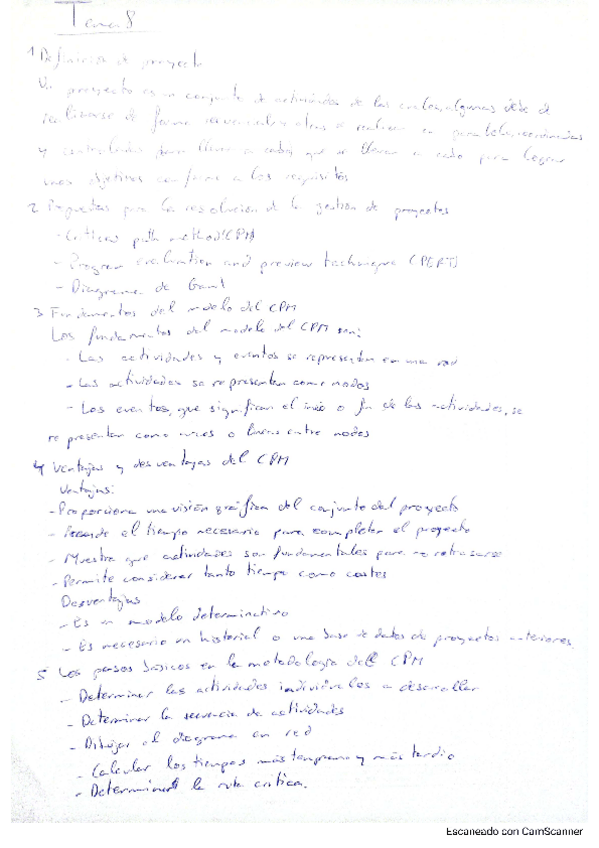 Tema 8
1 Definición de proyecto
Un proyecto es un conjunto de actividades de las cuales, algunas debe d
realizarse de forma secuencial y otras se realizan en paralelo, coordinadas
y controladas para llevar a cabo, que se llevan a cabo para lograr
unos objetivos conforme a los requisitos
2 Propuestas para la resolución de la gestión de proyectos
- Critical path method (CPM)
- Program evaluation and preview technique (PERT)
- Diagrama de Gantt
3 Fundamentos del modelo del CPM
Los fundamentos del modelo del CPM son:
- Las actividades y eventos se representan en una red
- Las actividades se representan como nodos
- Los eventos, que significan el inicio o fin de las actividades, se
representan como arcos o líneas entre nodos
4 Ventajas y desventajas del CPM
Ventajas:
- Proporciona una visión gráfica del conjunto del proyecto
- el tiempo necesario para completar el proyecto
- Muestra que actividades son fundamentales para no retrasarse
- Permite considerar tanto tiempo como costes
Desventajas
- Es un modelo
- Es necesario un historial o una base de datos de proyectos anteriores.
5 Los pasos básicos en la metodología del CPM
- Determinar las actividades individuales a desarrollar
- Determinar la secuencia de actividades
- Dibujar el diagrama en red
- Calcular los tiempos más temprano y más tardío
- Determinar la ruta crítica.
Escaneado con CamScanner